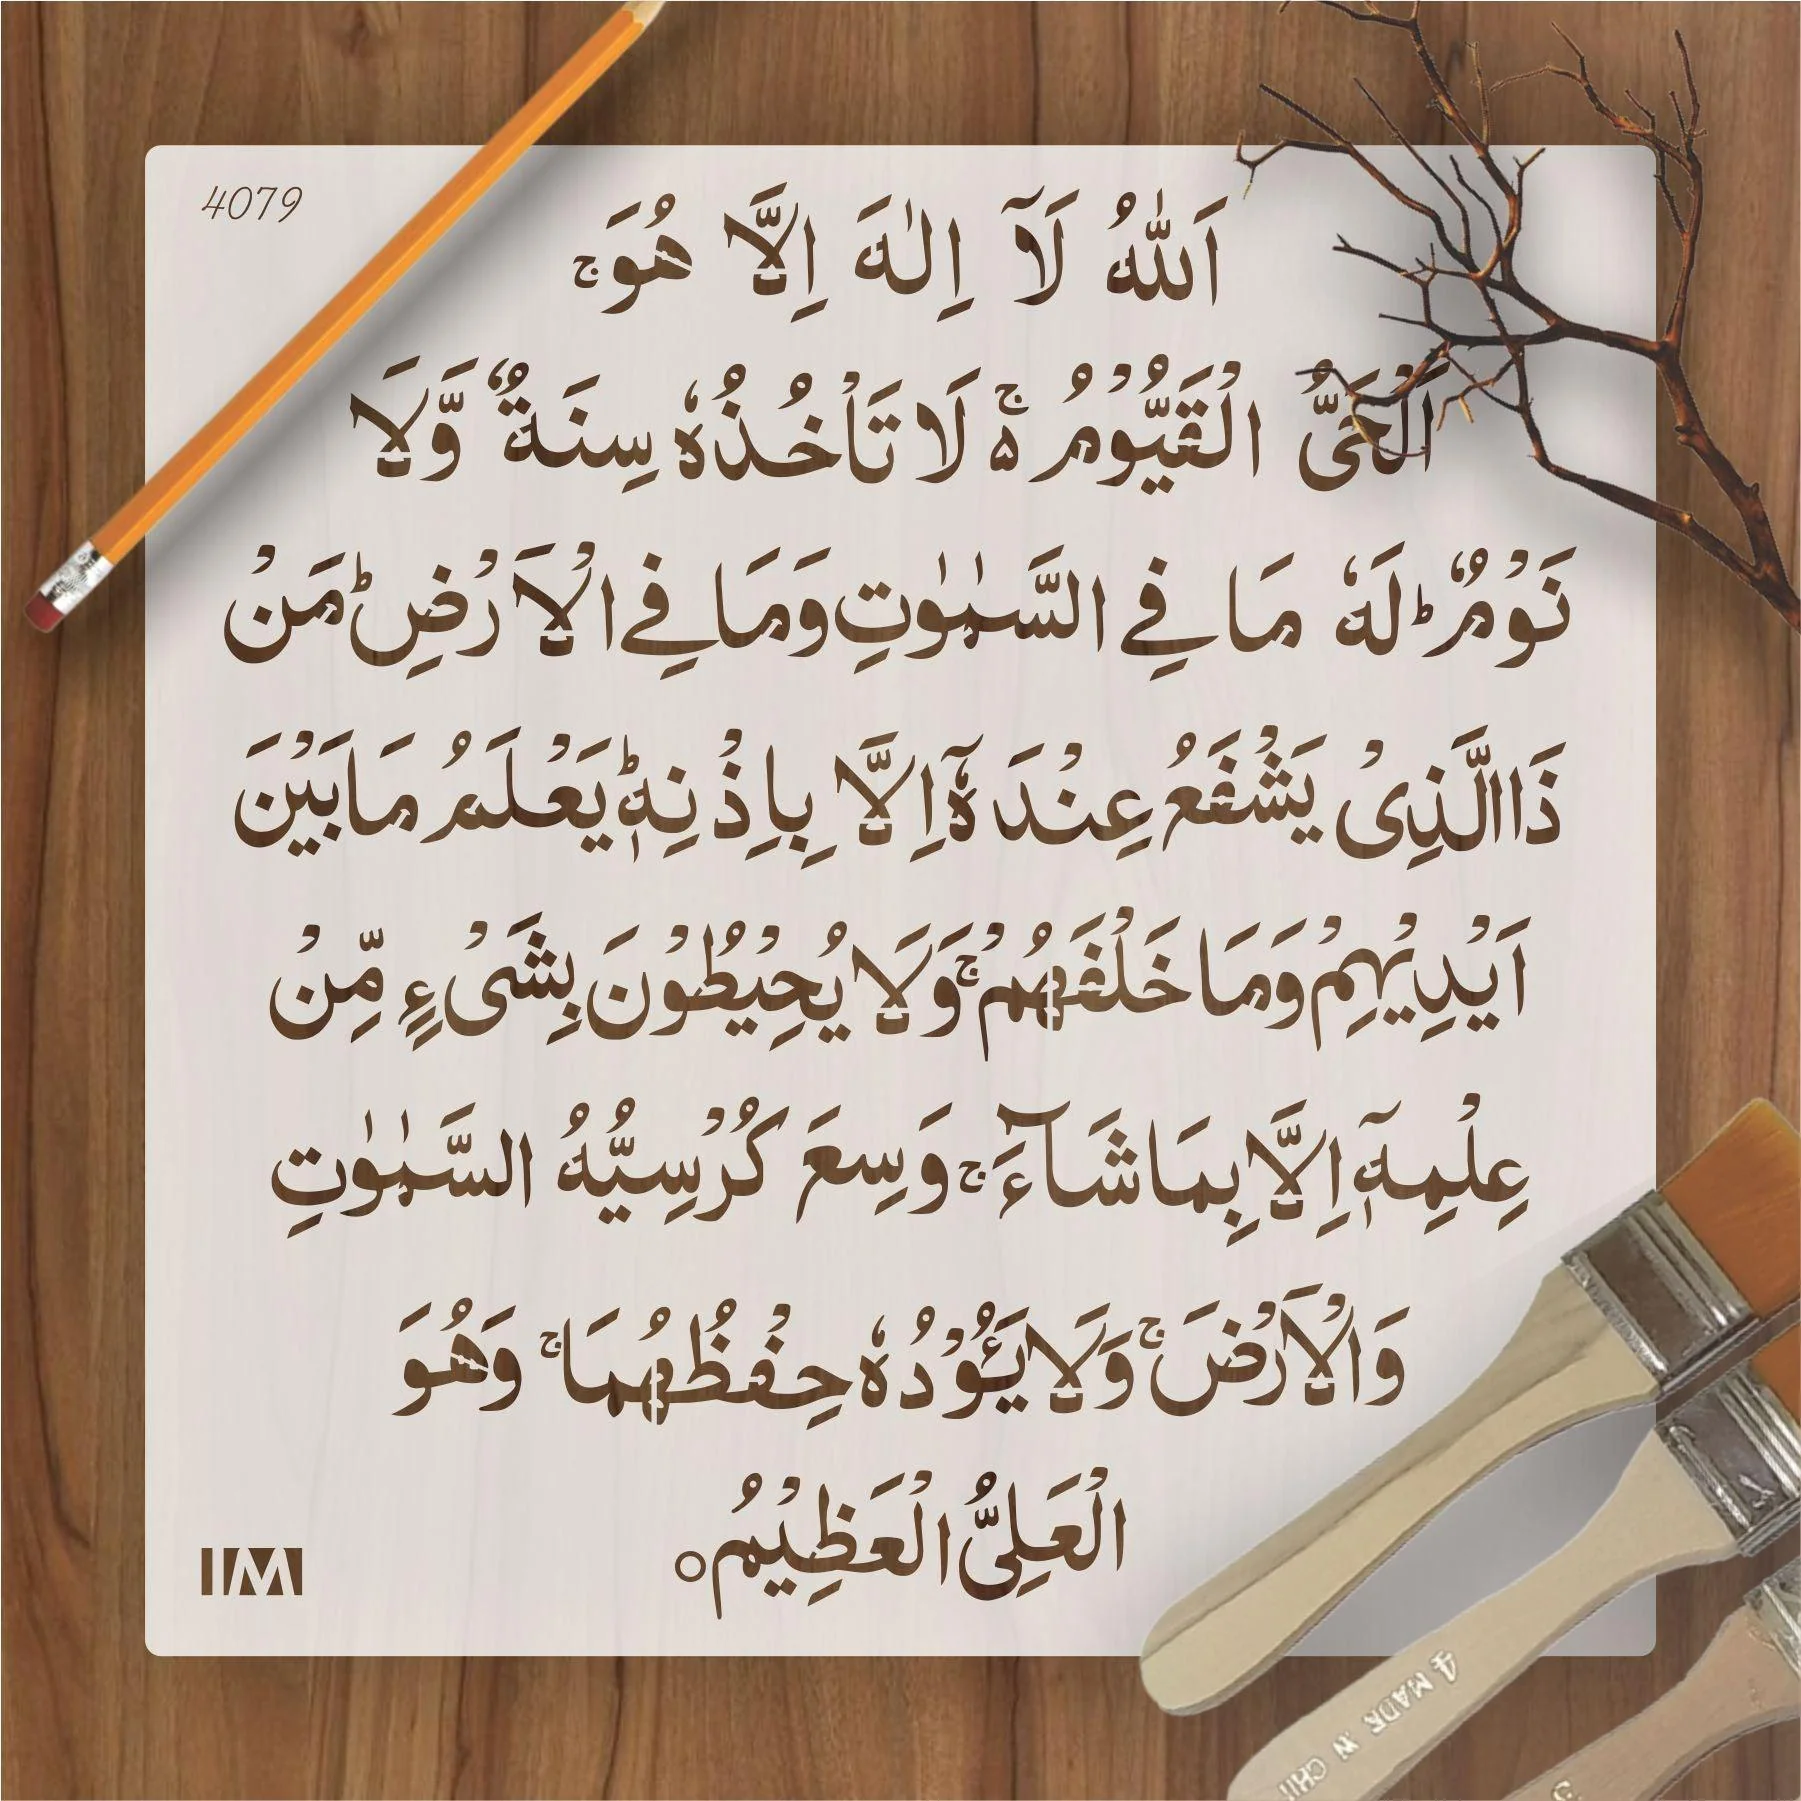 4079
اَللّٰهُ لَآ اِلٰهَ اِلَّا هُوَ ۚ
اَلْحَيُّ الْقَيُّوْمُ ۬ۚ لَا تَاْخُذُهٗ سِنَةٌ وَّلَا
نَوْمٌ ؕ لَهٗ مَا فِي السَّمٰوٰتِ وَمَا فِي الْاَرْضِ ؕ مَنْ
ذَا الَّذِىْ يَشْفَعُ عِنْدَهٗٓ اِلَّا بِاِذْنِهٖ ؕ يَعْلَمُ مَا بَيْنَ
اَيْدِيْهِمْ وَمَا خَلْفَهُمْ ۚ وَلَا يُحِيْطُوْنَ بِشَىْءٍ مِّنْ
عِلْمِهٖٓ اِلَّا بِمَا شَآءَ ۚ وَسِعَ كُرْسِيُّهُ السَّمٰوٰتِ
وَالْاَرْضَ ۚ وَلَا يَـُٔوْدُهٗ حِفْظُهُمَا ۚ وَهُوَ
الْعَلِىُّ الْعَظِيْمُ ○
IM
4 MADE .W CHI